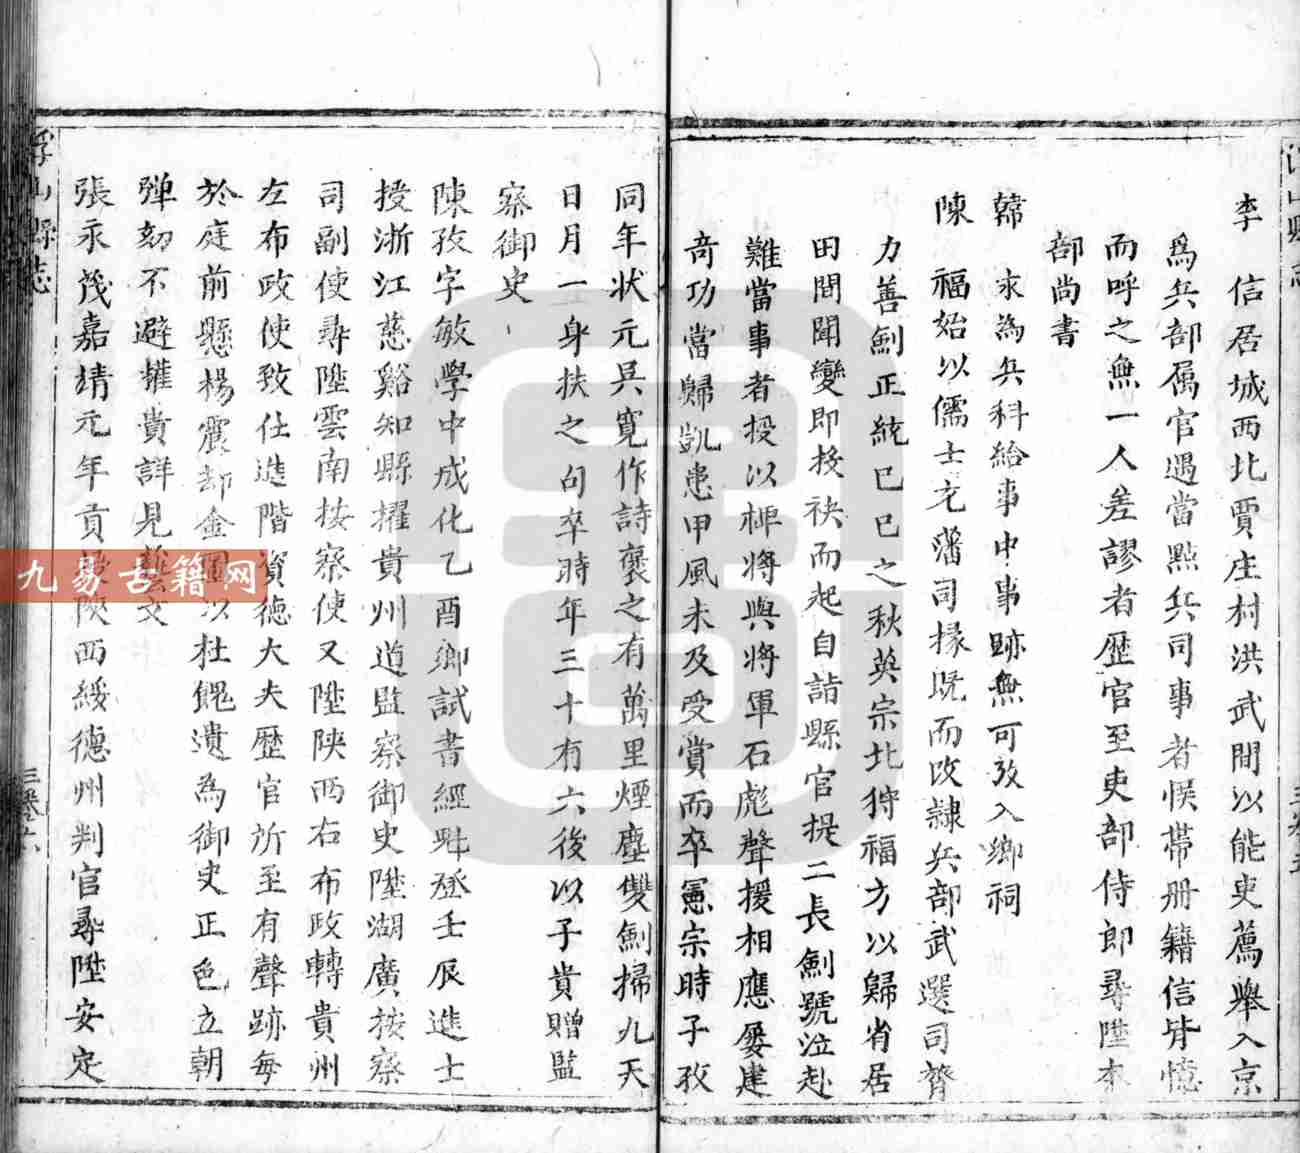 李　信居城西北賈庄村洪武間以能吏薦舉入京
為兵部属官遇當點兵司事者悮帶册籍信皆憶
而呼之無一人差謬者歷官至吏部侍郎尋陞本
部尚書
韓　求為兵科給事中事跡無可攷入鄉祠
陳　福始以儒士充藩司掾既而改隷兵部武選司胥
力善劍正統己巳之秋英宗北狩福方以歸省居
田間聞變即投袂而起自詣縣官提二長劍號泣赴
難當事者授以裨將與將軍石彪聲援相應屡建
竒功當歸凱患甲風未及受賞而卒憲宗時子孜
同年状元吳寛作詩褒之有萬里煙塵雙劍掃九天
日月一身扶之句卒時年三十有六後以子貴贈監
察御史
陳孜字敏學中成化乙酉鄉試書經魁登壬辰進士
授浙江慈谿知縣擢貴州道監察御史陞湖廣按察
司副使尋陞雲南按察使又陞陝西右布政轉貴州
左布政使致仕進階資德大夫歷官所至有聲跡每
於庭前懸楊震却金圖以杜餽遺為御史正色立朝
弹劾不避權貴詳見藝文
張永茂嘉靖元年貢授陝西綏德州判官尋陞安定
浮山縣志
三卷六
九易古籍网